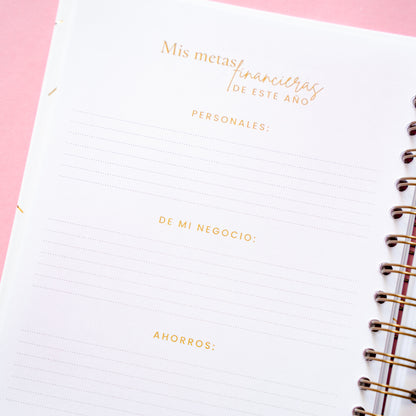 Mis metas
financieras
DE ESTE AÑO
PERSONALES:
DE MI NEGOCIO:
AHORROS: